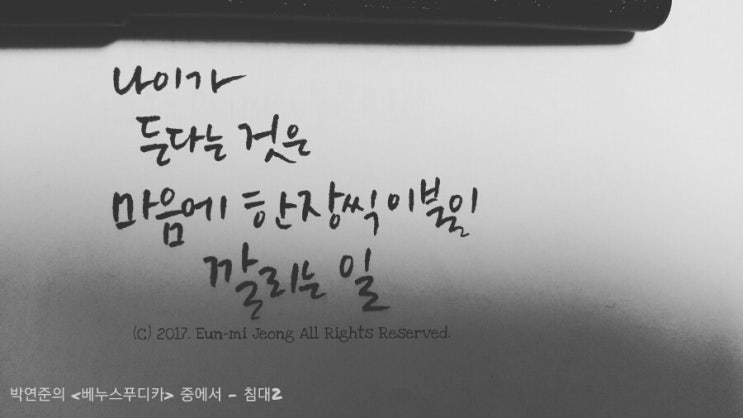 나이가
든다는 것은
마음에 한 장씩 이불이
깔리는 일
(C) 2017. Eun-mi Jeong All Rights Reserved.
박연준의 <베누스푸디카> 중에서 - 침대2